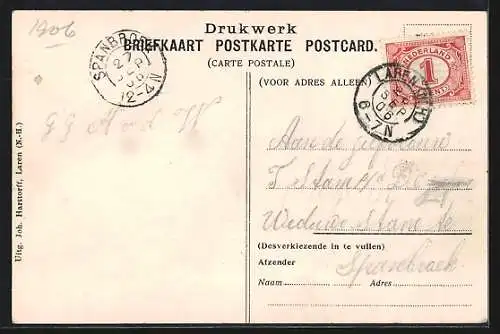 1906
Drukwerk
BRIEFKAART POSTKARTE POSTCARD.
(CARTE POSTALE)
(VOOR ADRES ALLEEN)
SPANBROEK
27 SEP 06
12-4N
NEDERLAND
1
CENT
LAREN
SEP 06
6-7N
Aan de
J Stam
Weduwe Stam te
(Desverkiezende in te vullen)
Afzender
Spanbroek
Naam
Adres
Uitg. Joh. Harstorff, Laren (N.-H.)